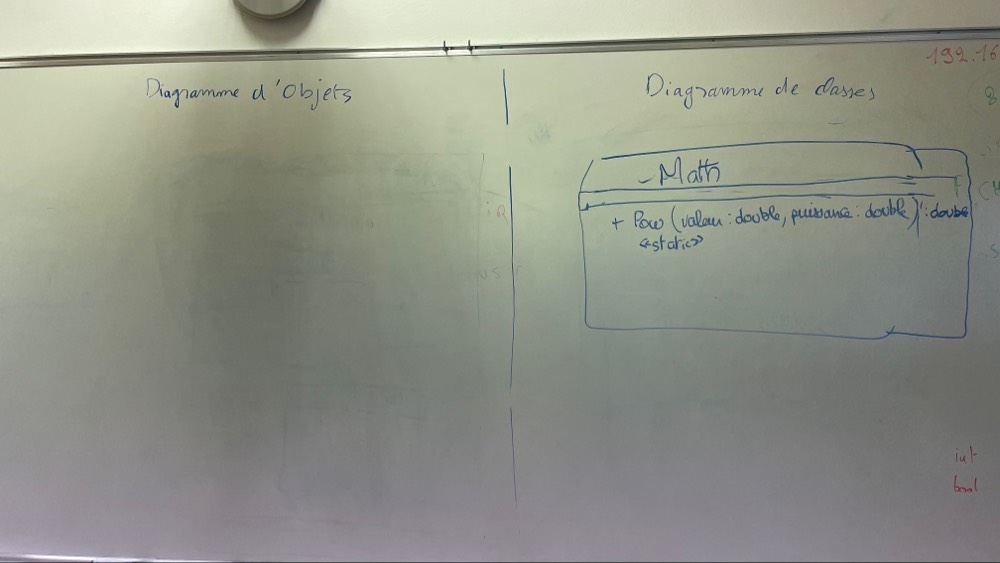 Diagramme d'Objets
Diagramme de classes
192.16
8
- Math
+ Pow (valeur : double, puissance : double) : double
<<static>>
int
bool